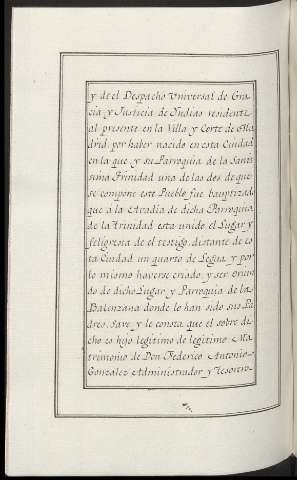 y de el Despacho Universal de Gra-
cia y Justicia de Yndias residente
al presente en la Villa y Corte de Ma
drid, por haver nacido en esta Ciudad
en la que y su Parroquia de la Santi
sima Trinidad una de las dos de que
se compone este Pueblo fue bauptizado
que á la de dicha Parroquia
de la Trinidad esta unido el Lugar y
feligresia de el testigo, distante de es
ta Ciudad un quarto de Legua, y por
lo mismo haverse criado, y ser oriun
do de dicho Lugar y Parroquia de la
donde lo han sido sus Pa
dres, save y le consta que el sobre di-
cho es hijo legitimo de legitimo Ma
trimonio de Don Federico Antonio
Gonzalez Administrador, y Tesorero